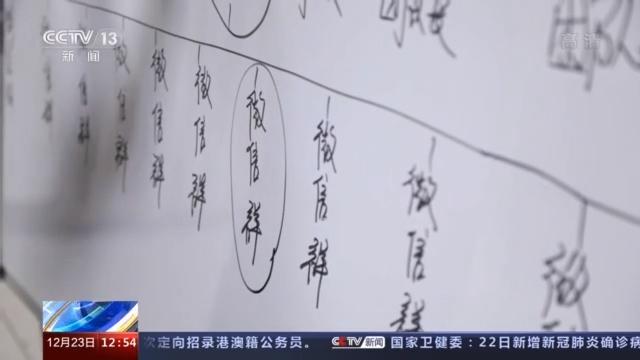 CCTV 13
新闻
高清
微信群
微信群
微信群
微信群
微信群
微信群
微信群
微信群
微
12月23日 12:54
次定向招录港澳籍公务员。 CCTV新闻 国家卫健委：22日新增新冠肺炎确诊病